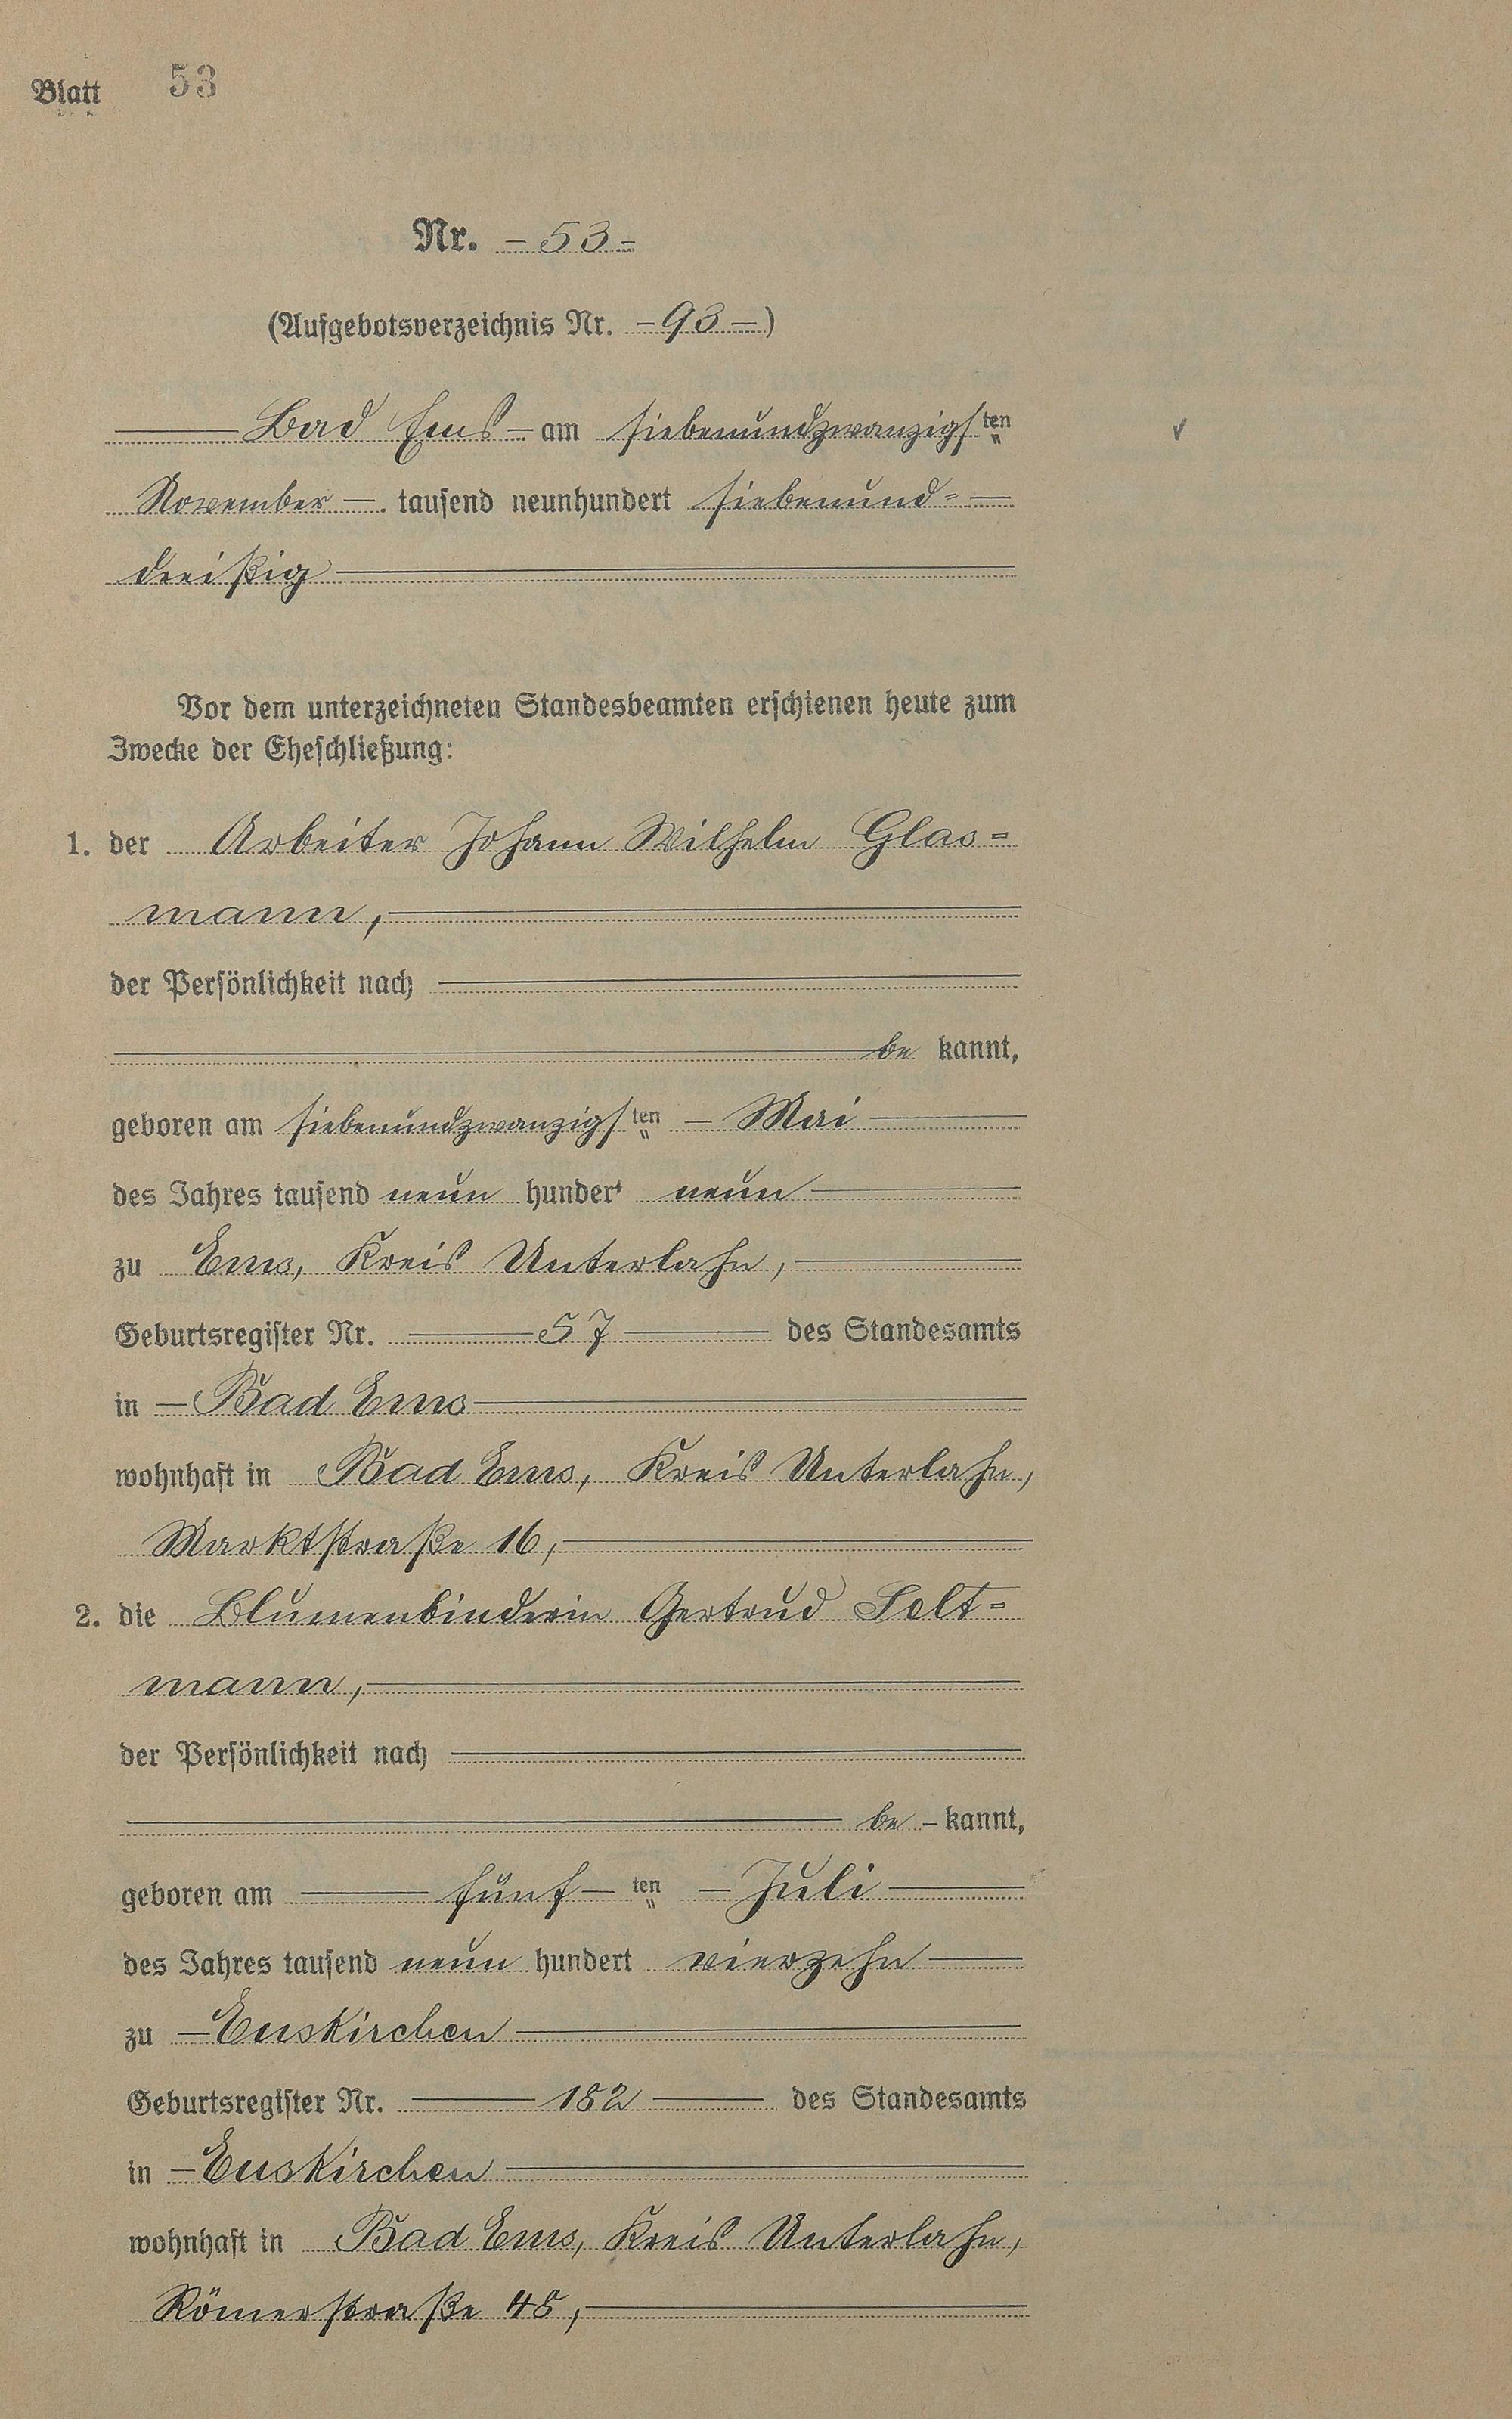 Blatt 53
Nr. – 53 –
(Aufgebotsverzeichnis Nr. – 93 –)
Bad Ems – am siebenundzwanzigsten
November – tausend neunhundert siebenund=
dreißig
Vor dem unterzeichneten Standesbeamten erschienen heute zum
Zwecke der Eheschließung:
1. der Arbeiter Johann Wilhelm Glas=
mann,
der Persönlichkeit nach
be kannt,
geboren am siebenundzwanzigsten – Mai
des Jahres tausend neun hundert neun
zu Ems, Kreis Unterlahn,
Geburtsregister Nr. 57 des Standesamts
in – Bad Ems
wohnhaft in Bad Ems, Kreis Unterlahn,
Marktstraße 16,
2. die Blumenbinderin Gertrud Selt=
mann,
der Persönlichkeit nach
be – kannt,
geboren am fünf – ten – Juli
des Jahres tausend neun hundert vierzehn
zu – Euskirchen
Geburtsregister Nr. 182 des Standesamts
in – Euskirchen
wohnhaft in Bad Ems, Kreis Unterlahn,
Römerstraße 48,